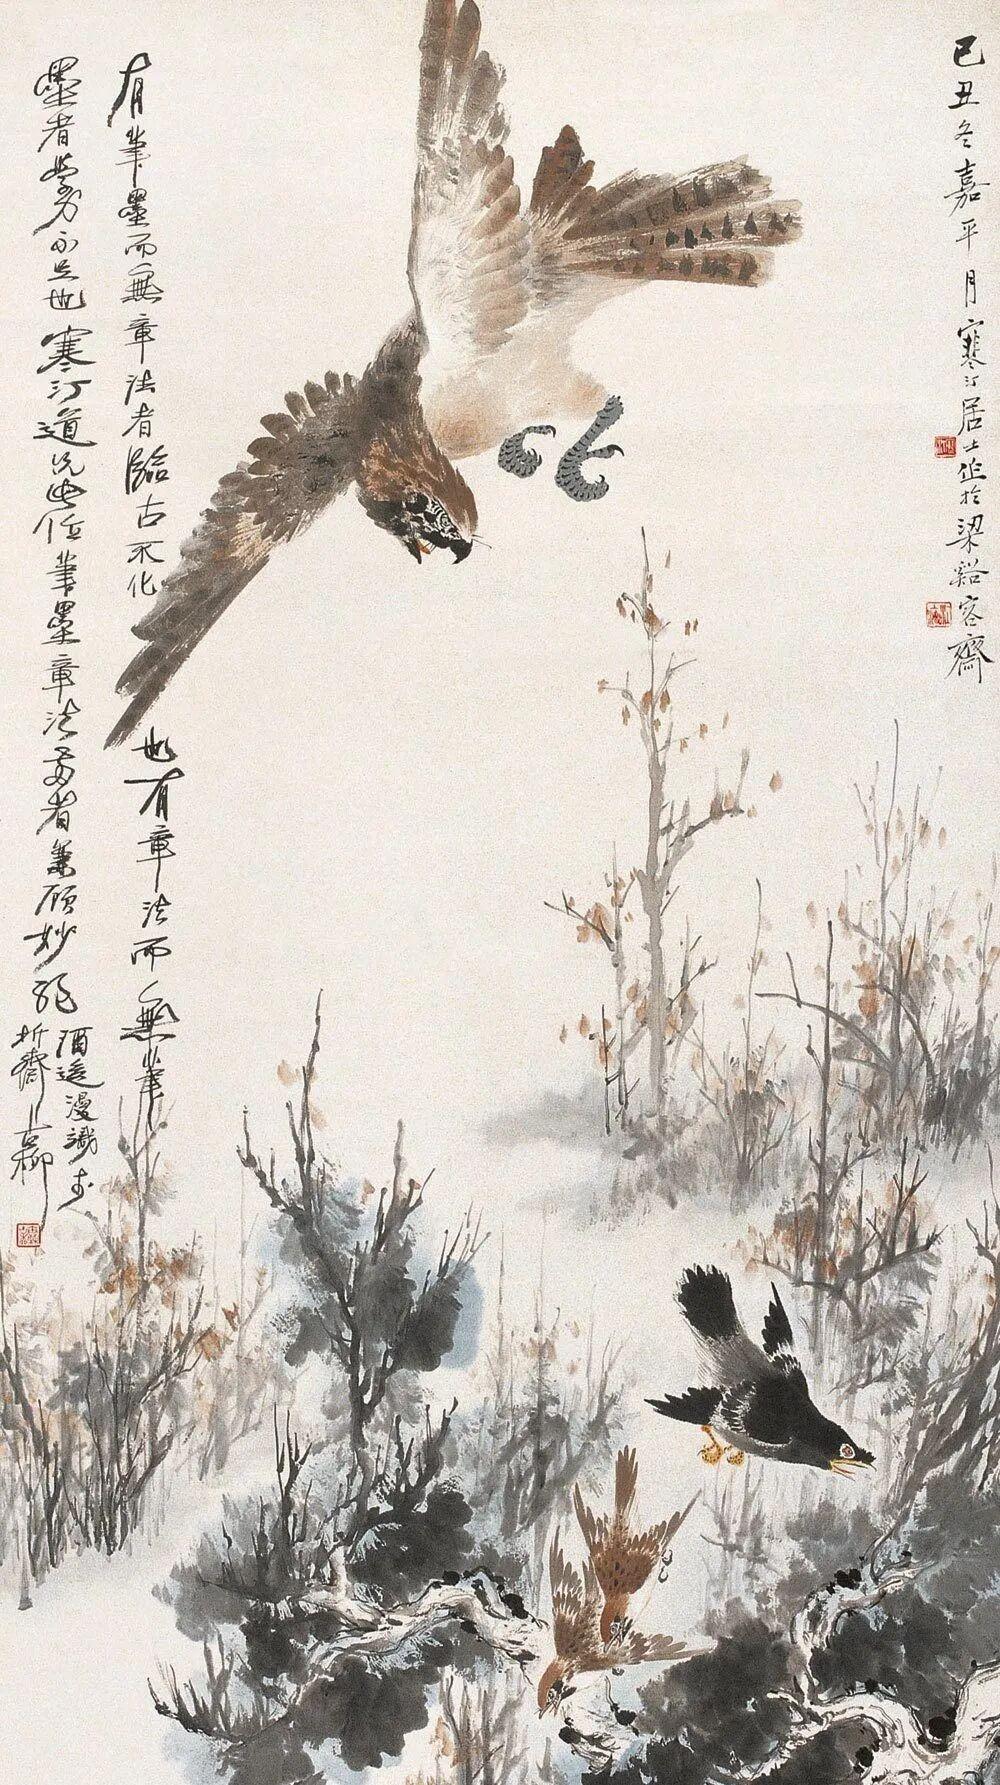 己丑冬嘉平月寒汀居士作於梁谿容齋
有筆墨而無章法者臨古不化
也有章法而無筆
墨者學力不足也寒汀道兄此作筆墨章法兩者兼顧妙絕
酒漫識於
齋古柳